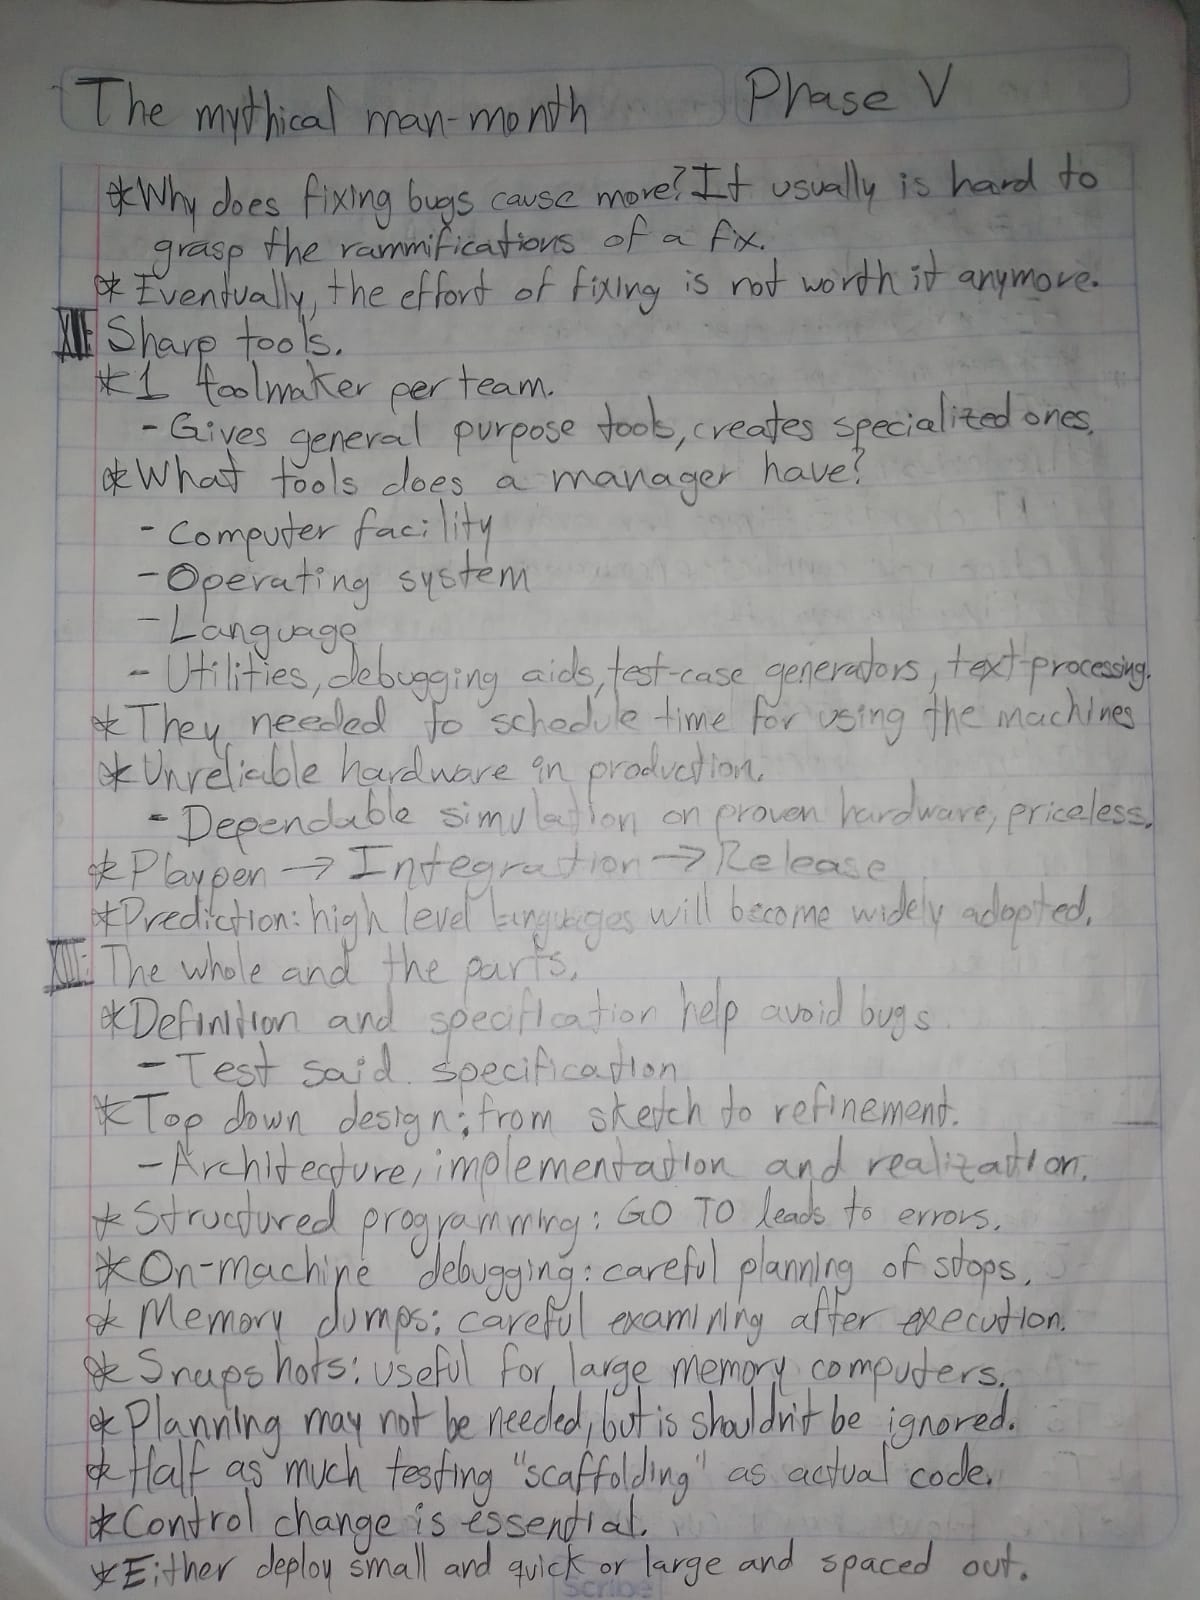 The mythical man-month
Phase V
*Why does fixing bugs cause more? It usually is hard to
grasp the rammifications of a fix.
* Eventually, the effort of fixing is not worth it anymore.
XII: Sharp tools.
*1 toolmaker per team.
- Gives general purpose tools, creates specialized ones.
*What tools does a manager have?
- Computer facility
- Operating system
- Language
- Utilities, debugging aids, test-case generators, text-processing.
* They needed to schedule time for using the machines
* Unreliable hardware in production.
- Dependable simulation on proven hardware, priceless.
* Playpen → Integration → Release
*Prediction: high level languages will become widely adopted.
XIII: The whole and the parts.
*Definition and specification help avoid bugs
- Test said specification
*Top down design: from sketch to refinement.
- Architecture, implementation and realization.
* Structured programming: GO TO leads to errors.
*On-machine debugging: careful planning of stops.
* Memory dumps: careful examining after execution.
* Snapshots: useful for large memory computers.
* Planning may not be needed, but is shouldn't be ignored.
* Half as much testing "scaffolding" as actual code.
*Control change is essential.
*Either deploy small and quick or large and spaced out.
Scribe